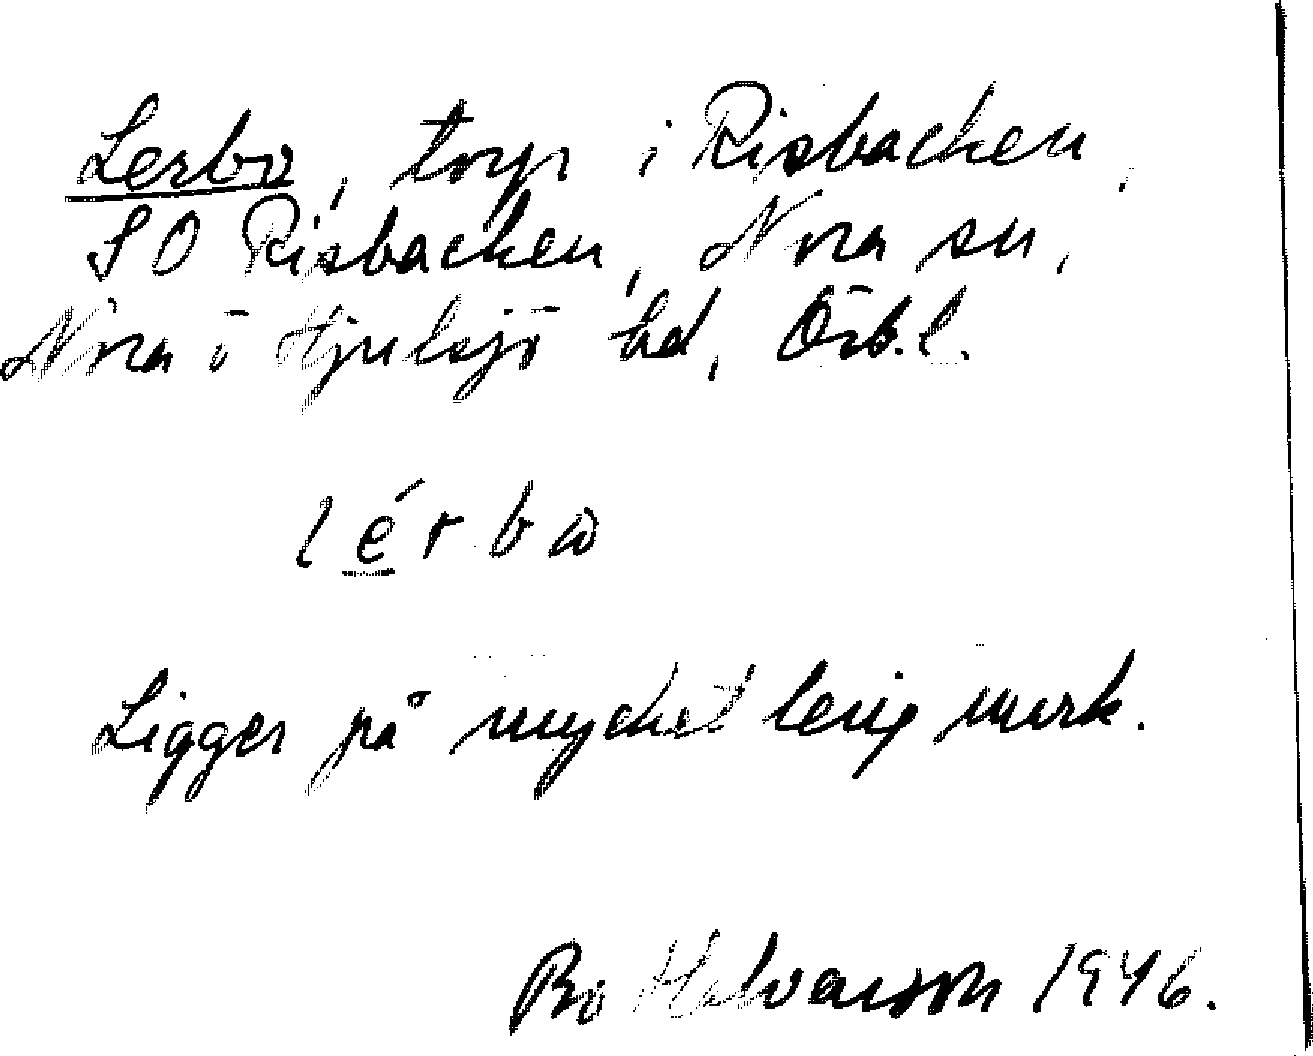 Lerbo, torp i Risbacken,
SO Risbacken, Nora sn,
Nora o Hjulsjö hd, Örb.l.
lérbω
Ligger på mycket lerig mark.
Bo Halvarson 1946.